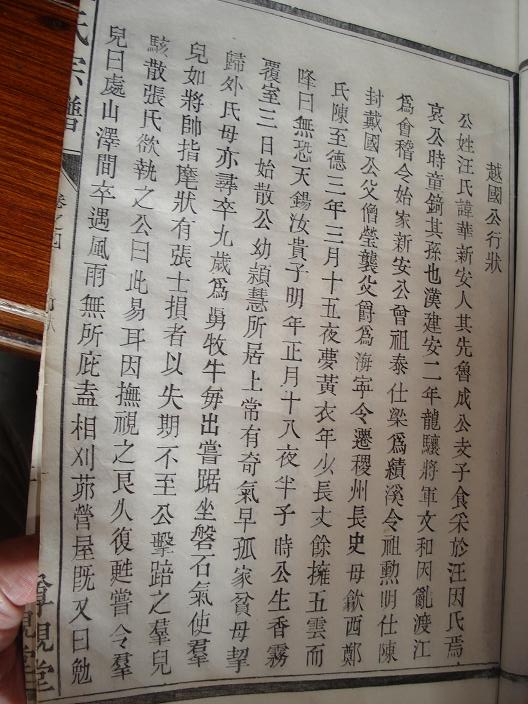 越國公行狀
公姓汪氏諱華新安人其先魯成公支子食采於汪因氏焉
哀公時童錡其孫也漢建安二年龍驤將軍文和因亂渡江
爲會稽令始家新安公曾祖泰仕梁爲績溪令祖勲明仕陳
封戴國公父僧瑩襲父爵爲海寧令遷稷州長史母歙西鄭
氏陳至德三年三月十五夜夢黃衣年少長丈餘擁五雲而
降曰無恐天錫汝貴子明年正月十八夜半子時公生香霧
覆室三日始散公幼頴慧所居上常有奇氣早孤家貧母挈
歸外氏母亦尋卒九歲爲舅牧牛每出嘗踞坐磐石氣使羣
兒如將帥指麾狀有張士損者以失期不至公擊踣之羣兒
駭散張氏欲執之公曰此易耳因撫視之良久復甦嘗令羣
兒曰處山澤間卒遇風雨無所庇盍相刈茆營屋既又曰勉
氏宗譜
卷之四
尊親堂